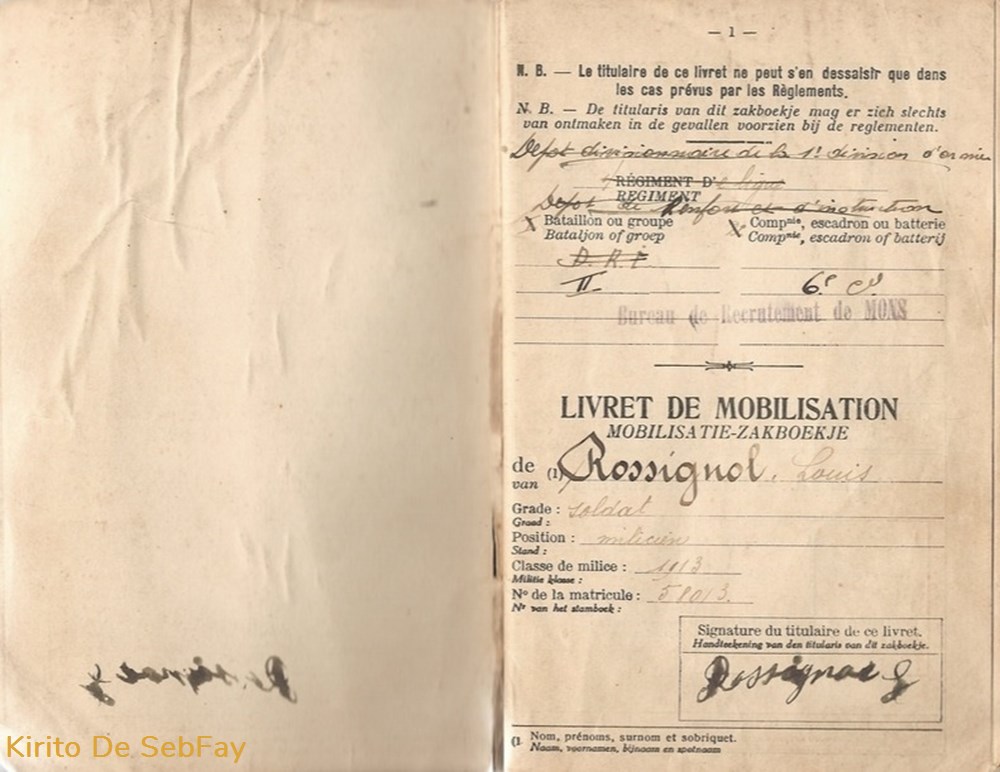 — 1 —
N. B. — Le titulaire de ce livret ne peut s'en dessaisir que dans
les cas prévus par les Règlements.
N. B. — De titularis van dit zakboekje mag er zich slechts
van ontmaken in de gevallen voorzien bij de reglementen.
Depot divisionnaire de la 1e division d'armée
RÉGIMENT D'e ligne
REGIMENT
Depot de Renfort et d'instruction
X Bataillon ou groupe X Compnie, escadron ou batterie
Bataljon of groep Compnie, escadron of batterij
D. R. I.
II 6e Cie
Bureau de Recrutement de MONS
LIVRET DE MOBILISATION
MOBILISATIE-ZAKBOEKJE
de (1) Rossignol. Louis
van
Grade : soldat
Graad :
Position : milicien
Stand :
Classe de milice : 1913
Militie klasse :
No de la matricule : 58013.
Nr van het stamboek :
Signature du titulaire de ce livret.
Handteekening van den titularis van dit zakboekje.
(1 Nom, prénoms, surnom et sobriquet.
Naam, voornamen, bijnaam en spotnaam
Kirito De SebFay